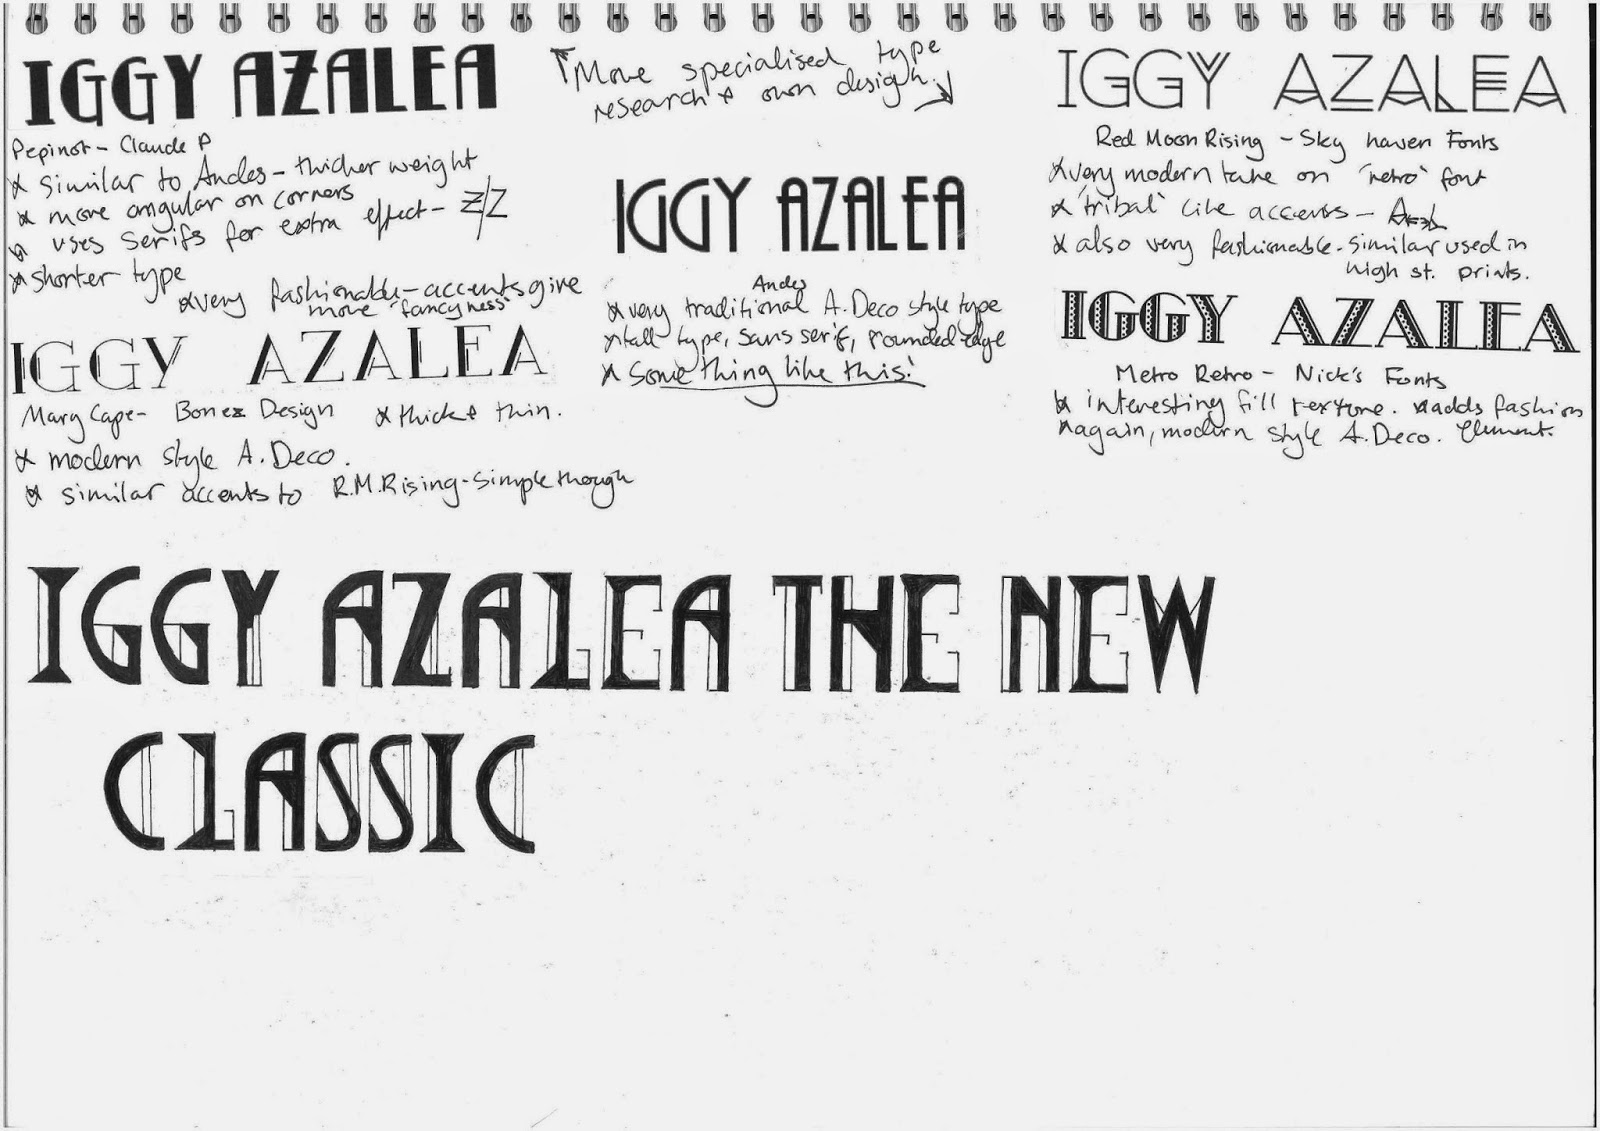 IGGY AZALEA
Pepinot - Claude P
* similar to Andes - thicker weight
* more angular on corners
* uses serifs for extra effect - Z/Z
* shorter type
* very fashionable - accents give
more 'fancyness'
IGGY AZALEA
Mary Cape - Bonez Design * thick + thin.
* modern style A. Deco.
* similar accents to R.M.Rising - simple though
↑ More specialised type
research + own design. ↓
IGGY AZALEA
Andes
* very traditional A. Deco style type
* tall type, sans serif, rounded edge
* Something like this!
IGGY AZALEA
Red Moon Rising - Sky haven Fonts
* very modern take on 'retro' font
* 'tribal' like accents -
* also very fashionable - similar used in
high st. prints.
IGGY AZALEA
Metro Retro - Nick's Fonts
* interesting fill texture. * adds fashion
element.
* again, modern style A. Deco.
IGGY AZALEA THE NEW
CLASSIC